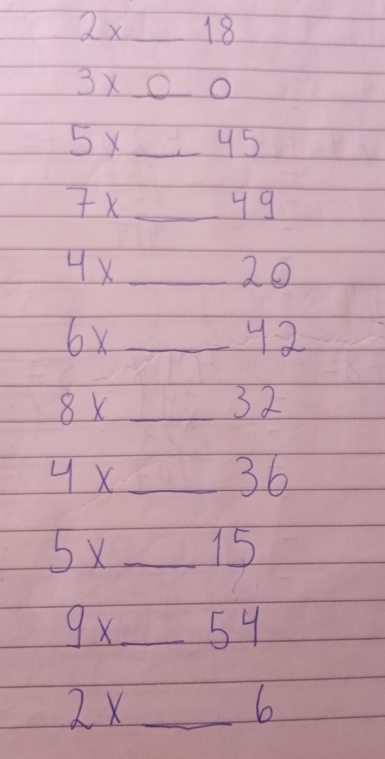 2x ___ 18
3x _0_ 0
5x ___ 45
7x ___ 49
4x ___ 20
6x ___ 42
8x ___ 32
4x ___ 36
5x ___ 15
9x ___ 54
2x ___ 6